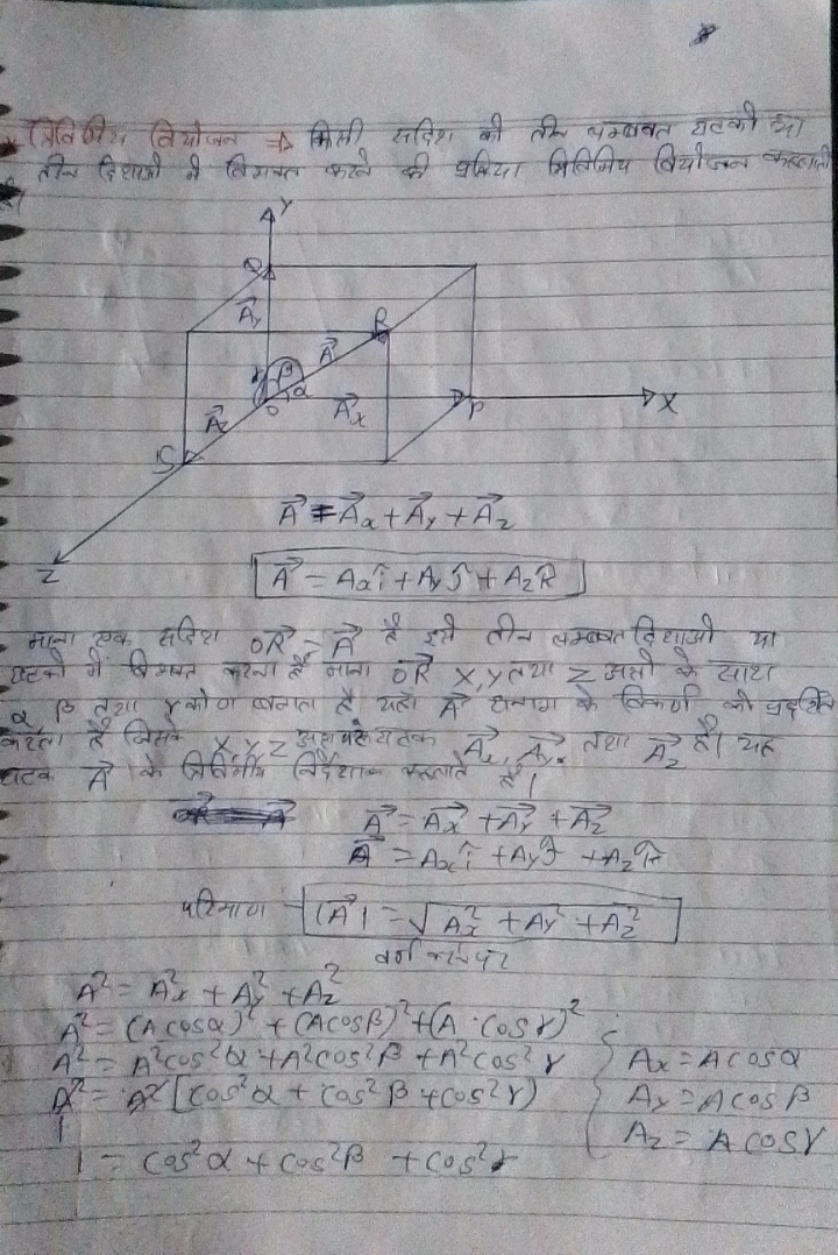 त्रिविमीय वियोजन ⇒ किसी सदिश को तीन लम्बवत घटको या
तीन दिशाओ मे विभक्त करने की प्रक्रिया त्रिविमिय वियोजन कहलाती
Y
Q
A⃗y
R
A⃗
β
γ
α
O
A⃗x
P
X
A⃗z
S
Z
A⃗ = A⃗x + A⃗y + A⃗z
A⃗ = Axî + Ayĵ + Azk̂
माना एक सदिश OR⃗ = A⃗ है इसे तीन लम्बवत दिशाओ या
घटको में विभक्त करना है माना OR⃗ X, Y तथा Z अक्षो के साथ
α β तथा γ कोण बनाता है यहाँ A⃗ घनाभ के विकर्ण को प्रदर्शित
करता है जिसके X, Y, Z अक्ष घटक A⃗x, A⃗y, तथा A⃗z है। यह
घटक A⃗ के त्रिविमीय निर्देशांक कहलाते है।
A⃗ = A⃗x + A⃗y + A⃗z
A⃗ = Axî + Ayĵ + Azk̂
परिमाण |A⃗| = √Ax² + Ay² + Az²
वर्ग करने पर
A² = Ax² + Ay² + Az²
A² = (A cosα)² + (A cosβ)² + (A · cosγ)²
A² = A²cos²α + A²cos²β + A²cos²γ
Ax = A cosα
A² = A² [cos²α + cos²β + cos²γ)
Ay = A cosβ
1
Az = A cosγ
1 = cos²α + cos²β + cos²γ